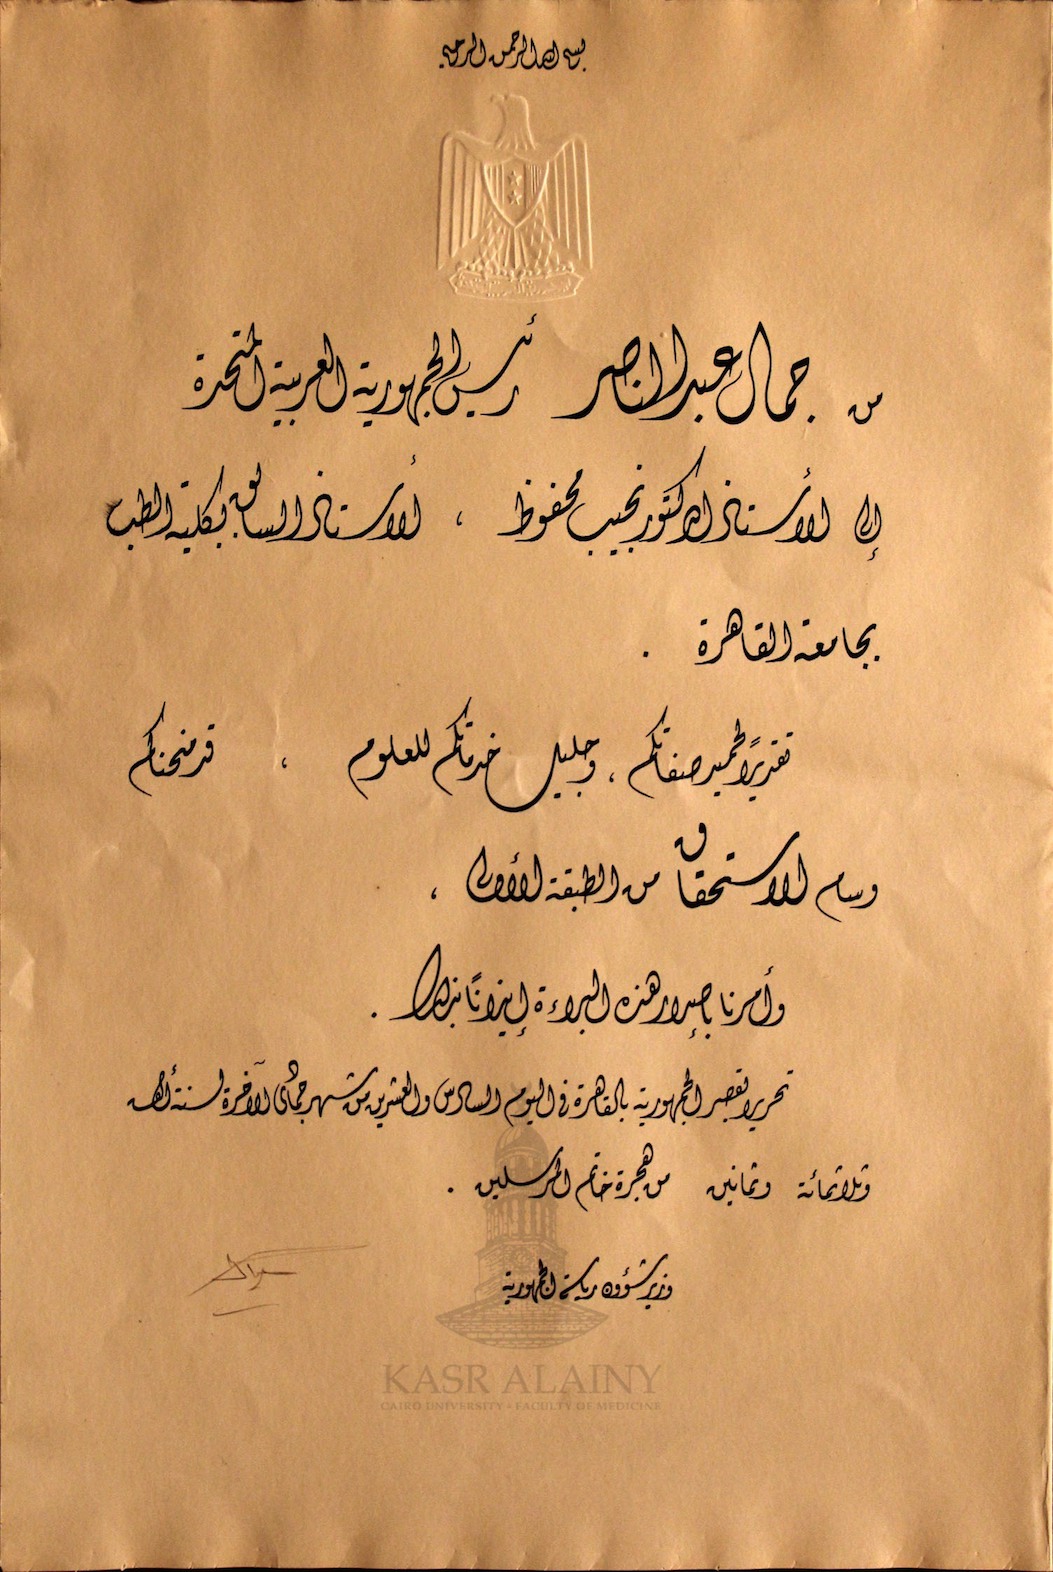 بسم الله الرحمن الرحيم
من جمال عبد الناصر رئيس الجمهورية العربية المتحدة
إلى الأستاذ الدكتور نجيب محفوظ ، الأستاذ السابق بكلية الطب
بجامعة القاهرة .
تقديرًا لحميد صفاتكم ، وجليل خدماتكم للعلوم ، قد منحناكم
وسام الاستحقاق من الطبقة الأولى ،
وأمرنا بإصدار هذه البراءة إيذانًا بذلك .
تحريرا بقصر الجمهورية بالقاهرة في اليوم السادس والعشرين من شهر جمادى الآخرة لسنة ألف
وثلاثمائة وثمانين من هجرة خاتم المرسلين .
وزير شؤون رياسة الجمهورية
KASR ALAINY
CAIRO UNIVERSITY • FACULTY OF MEDICINE